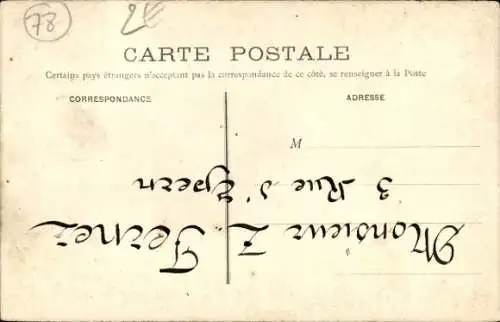 78
2€
CARTE POSTALE
Certains pays étrangers n'acceptant pas la correspondance de ce côté, se renseigner à la Poste
CORRESPONDANCE
ADRESSE
M
Monsieur L.
3 Rue d'